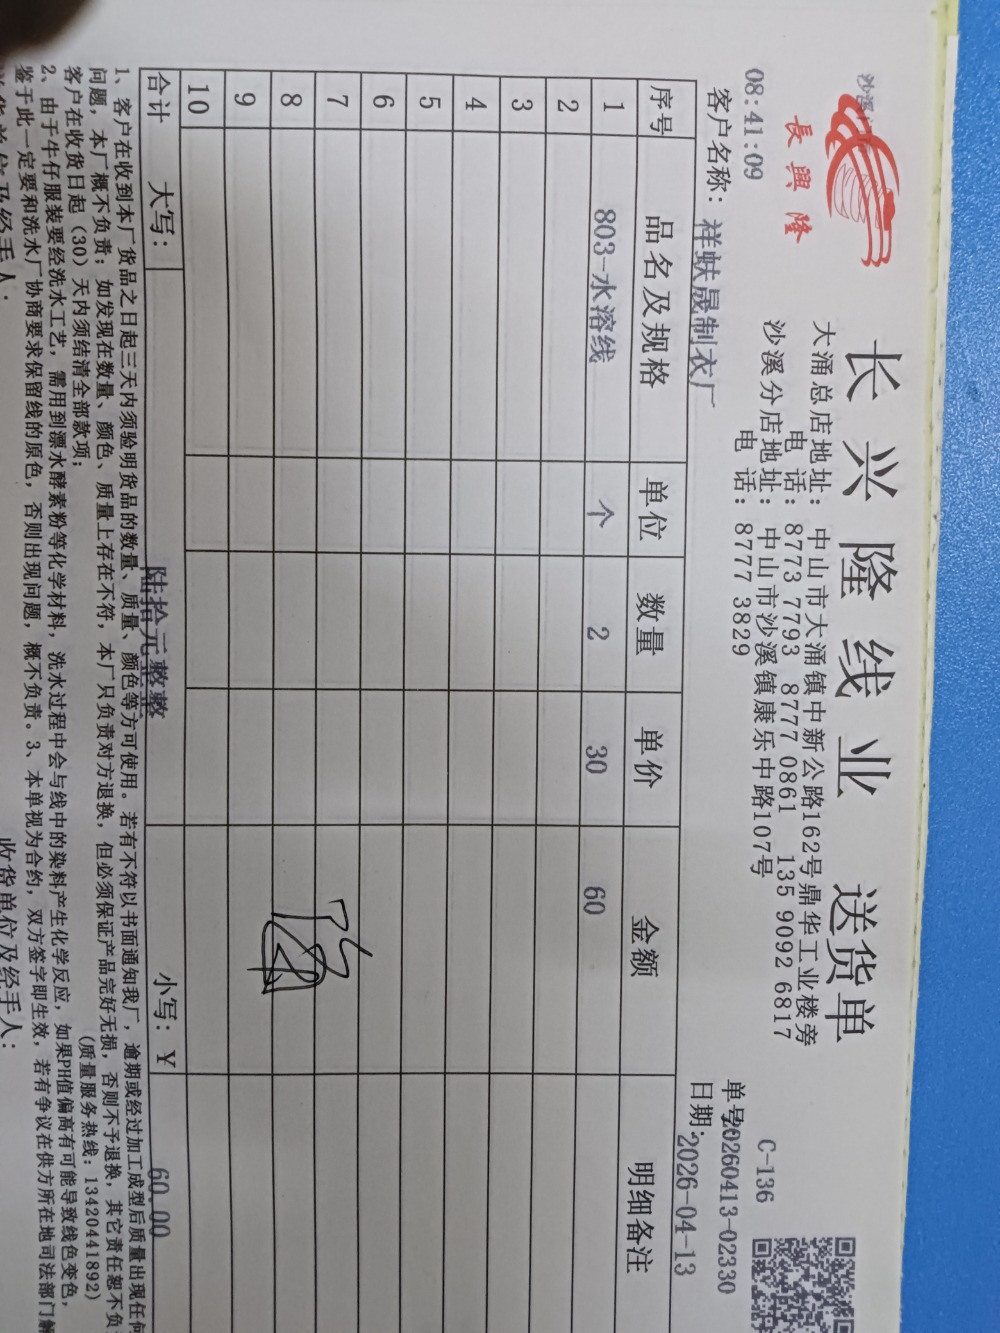 長興隆
长兴隆线业 送货单
大涌总店地址：中山市大涌镇中新公路162号鼎华工业楼旁
电话：8773 7793 8777 0861 135 9092 6817
沙溪分店地址：中山市沙溪镇康乐中路107号
电话：8777 3829
C-136
08:41:09
单号20260413-02330
客户名称：祥蚨晟制衣厂
日期：2026-04-13
序号 品名及规格 单位 数量 单价 金额 明细备注
1 803-水溶线 个 2 30 60
2
3
4
5
6
7
8
9
10
合计 大写： 陆拾元整整 小写：¥ 60.00
1、客户在收到本厂货品之日起三天内须验明货品的数量、质量、颜色等方可使用。若有不符以书面通知我厂，逾期或经过加工成型后质量出现任何
问题，本厂概不负责；如发现在数量、颜色、质量上存在不符，本厂只负责对方退换，但必须保证产品完好无损，否则不予退换，其它责任恕不负
客户在收货日起（30）天内须结清全部款项；
(质量服务热线：13420441892)
2、由于牛仔服装要经洗水工艺，需用到漂水酵素粉等化学材料，洗水过程中会与线中的染料产生化学反应，如果PH值偏高有可能导致线色变色，
鉴于此一定要和洗水厂协商要求保留线的原色，否则出现问题，概不负责。3、本单视为合约，双方签字即生效，若有争议在供方所在地司法部门解
送货单位及经手人： 收货单位及经手人：